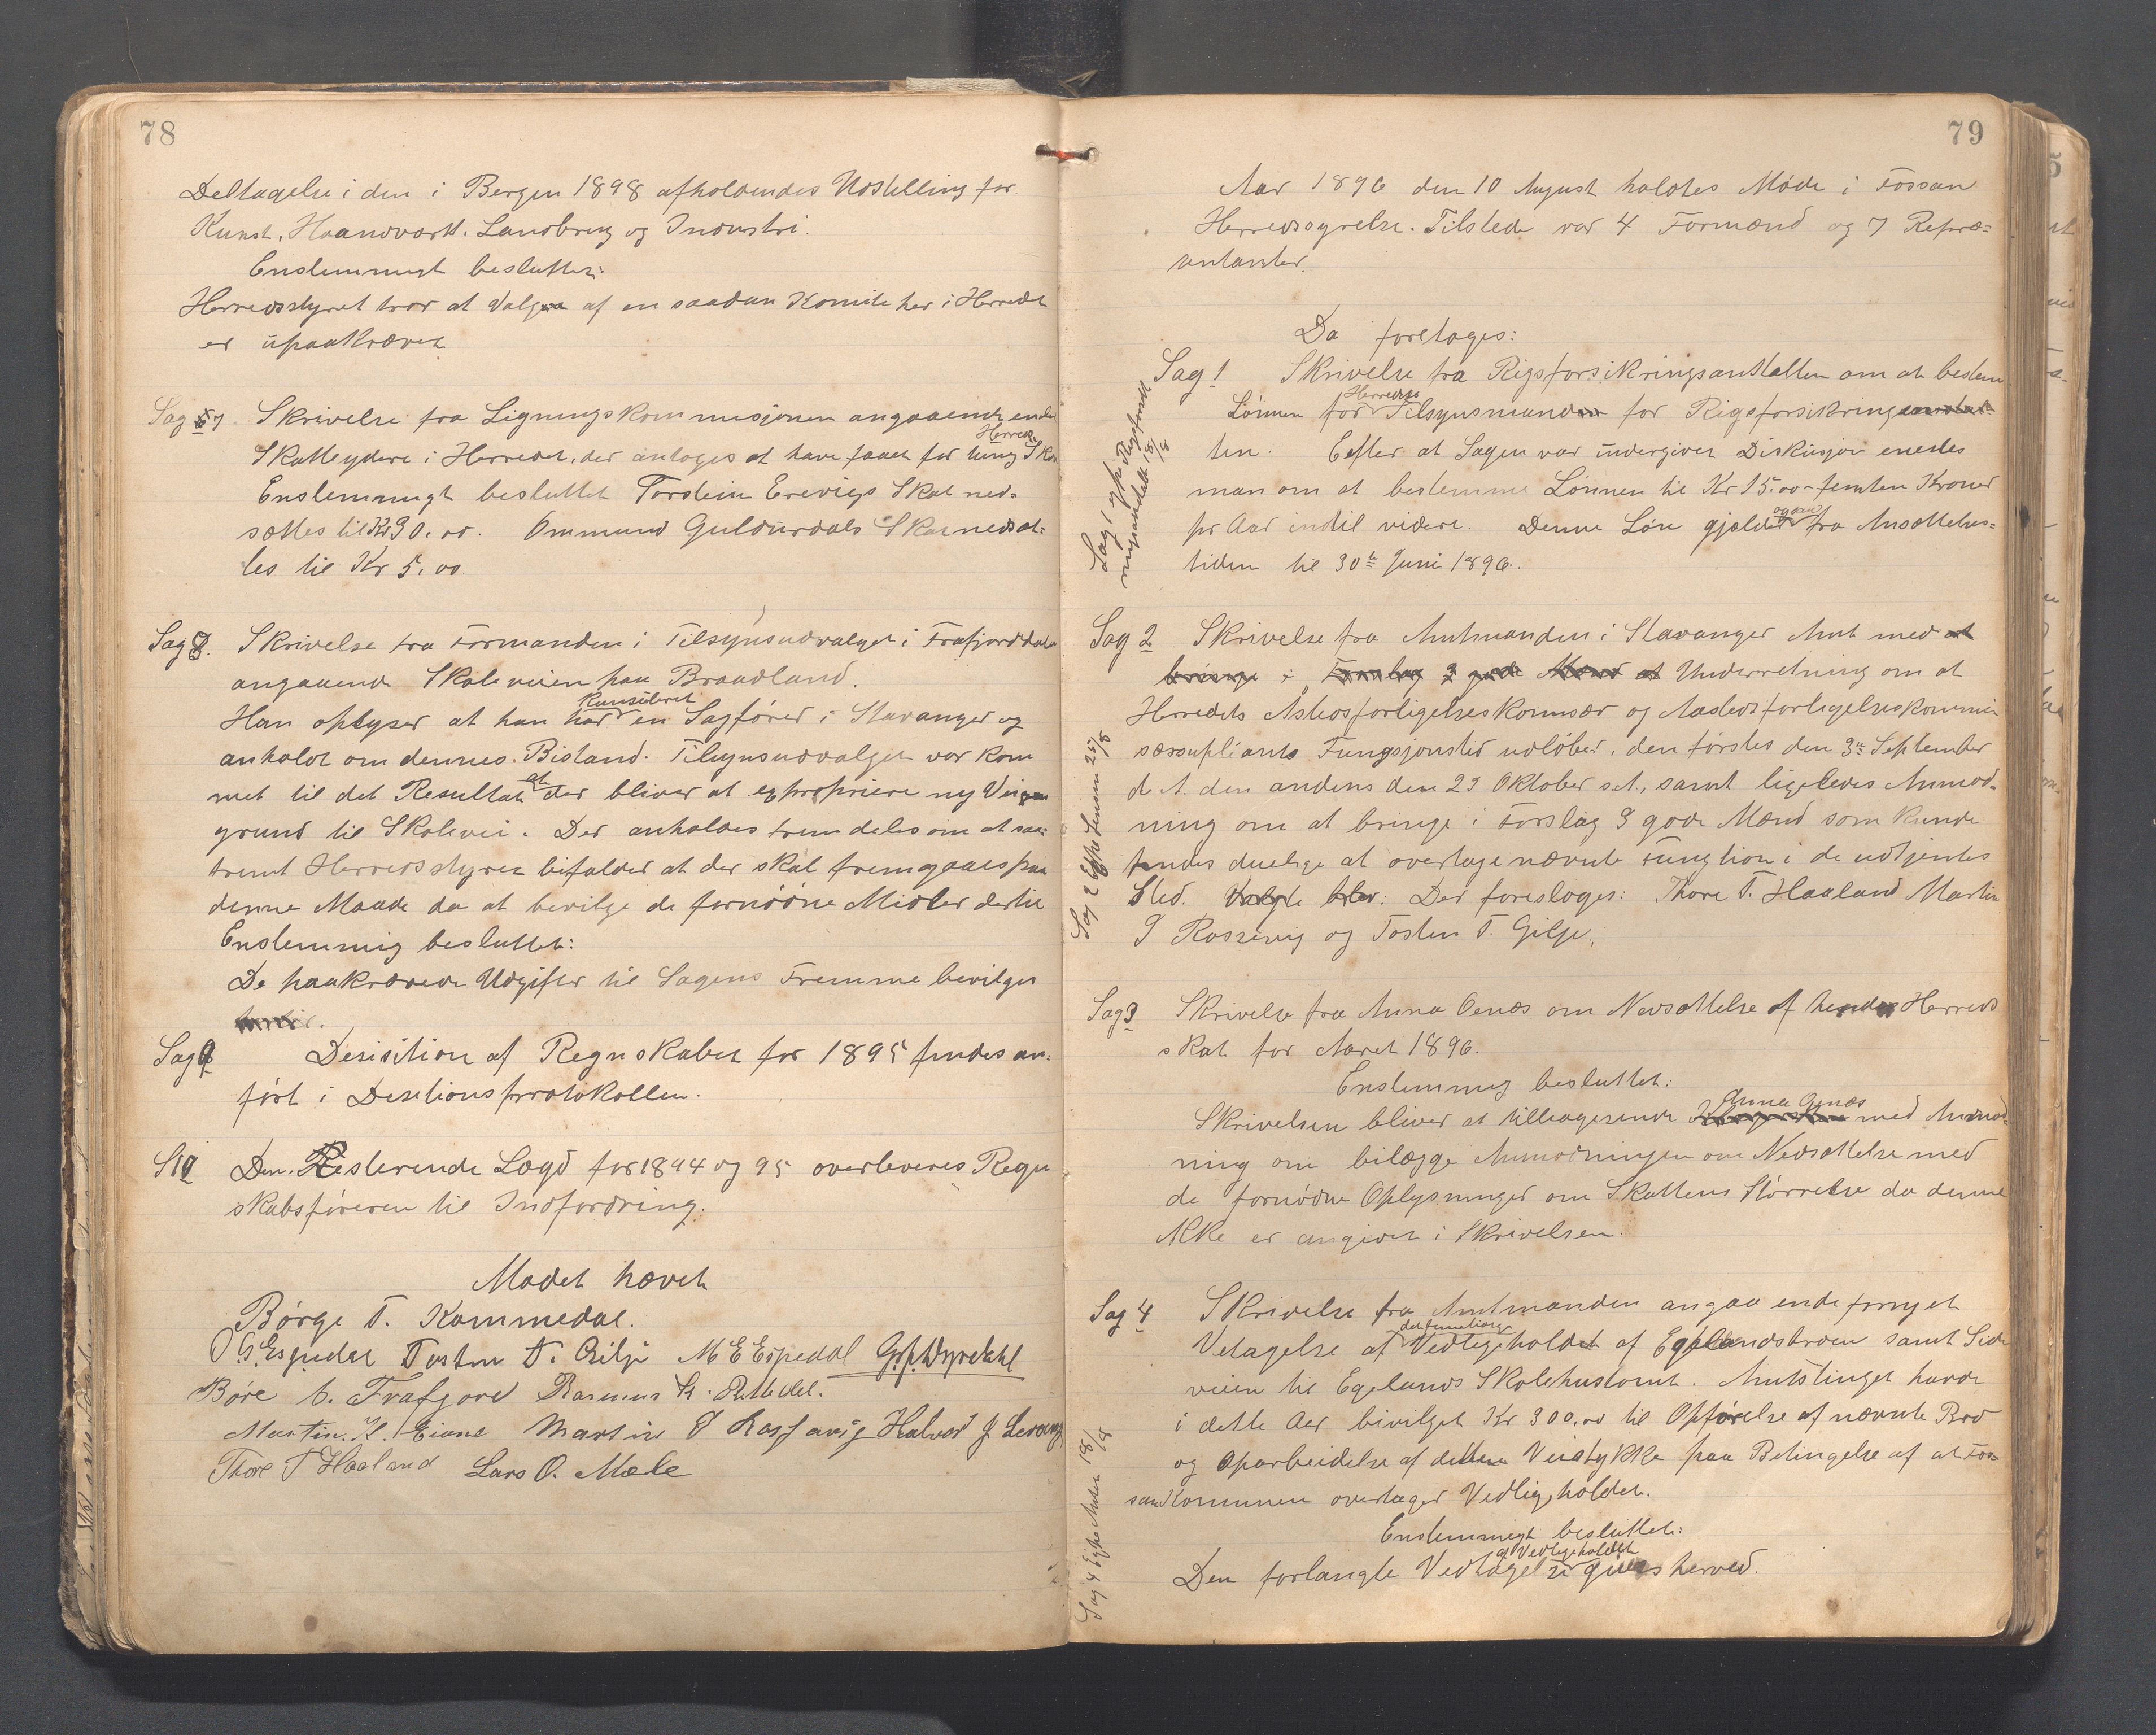 78
Deltagelse i den i Bergen 1898 afholdendes Udstelling for
Kunst, Haandværk, Landbrug og Industri.
Enstemmigt besluttet:
Herredsstyret tror at Valg af en saadan Komite her i Herredet
er upaakrævet
Sag 7. Skrivelse fra Ligningskommisjonen angaaende
Skatteydere i Herredet, der antages at have faaet for tung Herreds Skat
Enstemmigt besluttet Torstein Erevigs Skat ned-
sættes til Kr 30.00. Ommund Guldurdals Skat nedsæt-
tes til Kr 5.00
Sag 8. Skrivelse fra Formanden i Tilsynsudvalget i Frafjorddalen
angaaende Skoleveien paa Braadland.
Han oplyser at han har Konsuleret en Sagfører i Stavanger og
anholdt om dennes Bistand. Tilsynsudvalget var kom
met til det Resultat at der bliver at expropriere ny Vei
grund til Skolevei. Der anholdes fremdeles om at saa-
fremt Herredsstyret bifalder at der skal fremgaaes paa
denne Maade da at bevilge de fornødne Midler dertil
Enstemmig besluttet:
De paakrævede Udgifter til Sagens Fremme bevilges
Sag 9 Desisition af Regnskabet for 1895 findes an-
ført i Desitionsprotokollen.
S 10 Den Resterende Lægd for 1894 og 95 overleveres Regn
skabsføreren til Indfordring.
Mødet hævet
Børge T. Kommedal.
O. G. Espedal Tosten T. Gilje M E Espedal G. P. Dyrdahl
Børe C. Frafjord Rasmus
Martin. K. Eiane Martin T Rossavig Halvor J Levang
Thore T Haaland Lars O. Mæle
79
Aar 1896 den 10 August holdtes Møde i Fossan
Herredsstyrelse. Tilstede var 4 Formænd og 7 Repræ-
sentanter.
Da foretoges:
Sag 1 Skrivelse fra Rigsforsikringsanstalten om at bestem
Lønnen for Herredets Tilsynsmand for Rigsforsikringsanstal-
ten. Efter at Sagen var undergivet Diskusjon enedes
man om at bestemme Lønnen til Kr 15.00 - femten Kroner
pr Aar indtil videre. Denne Løn gjælder ogsaa fra Ansættelses-
tiden til 30te Juni 1896.
Sag 1 exp. Rigsforsik
ringsanstalt 18/8
Sag 2 Skrivelse fra Amtmanden i Stavanger Amt med at
bringe i Forslag 3 gode Mænd at Underretning om at
Herredets Astedsforligelseskommisær og Aastedsforligelseskommi
særsupliants Fungsjonstid udløber, den førstes den 3die September
d. A. den andens den 23 Oktober s. A., samt ligeledes Anmod-
ning om at bringe i Forslag 3 gode Mænd som kunde
findes duelige at overtage nævnte Fungtion i de udtjentes
Sted. Valgte blev: Der foresloges: Thore T. Haaland Martin
T Rossevig og Tosten T. Gilje.
Sag 2 Exp. Lensm 25/8
Sag 3 Skrivelse fra Anna Oenæs om Nedsættelse af hendes Herreds
skat for Aaret 1896.
Enstemmig besluttet:
Skrivelsen bliver at tilbagesende Anna Oenæs med Anmod-
ning om bilægge Anmodningen om Nedsættelse med
de fornødne Oplysninger om Skattens Størrelse da denne
ikke er angivet i Skrivelsen.
Sag 4 Skrivelse fra Amtmanden angaaende fornyet
Vetagelse af det fremtidige Vedligeholdet af Egelandsbroen samt Side
veien til Egelands Skolehustomt. Amtstinget havde
i dette Aar bivilget Kr 300.00 til Opførelse af nævnte Bro
og Oparbeidelse af dette Veistykke paa Betingelse af at Fos-
san Kommune overtager Vedligeholdet.
Enstemmigt besluttet:
Den forlangte Vedtagelse af Vedligeholdet gives herved.
Sag 4 Exp. Amten 18/8